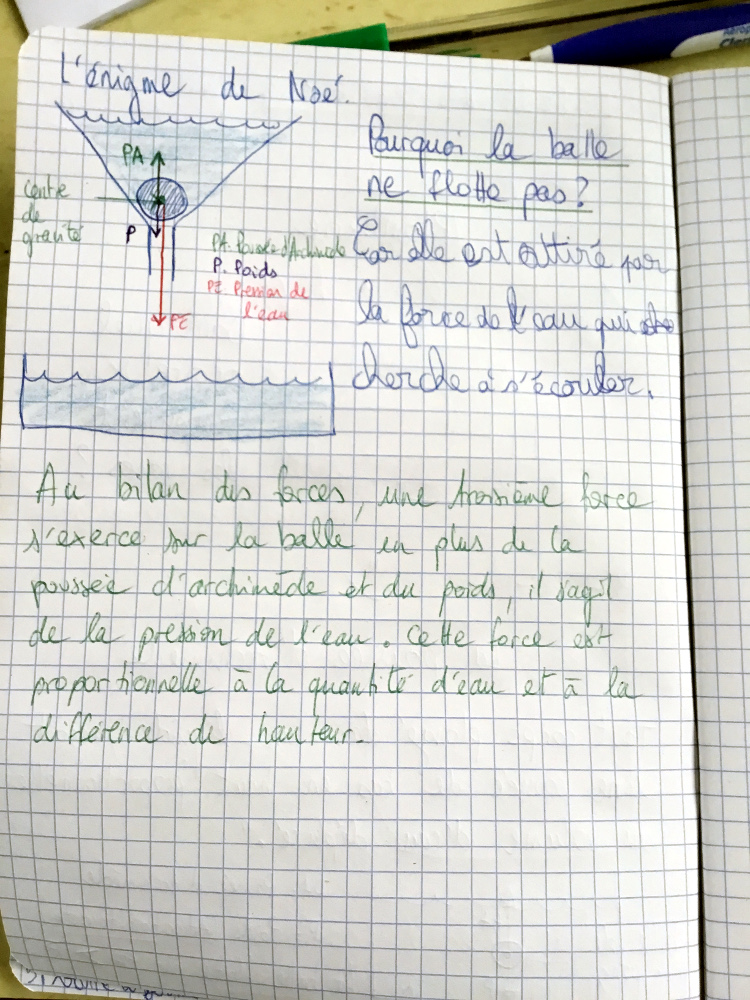 L'énigme de Noé.
PA
centre
de
gravité
P
PA. Poussée d'Archimède
P. Poids
PE. Pression de
l'eau
PE
Pourquoi la balle
ne flotte pas?
Car elle est attiré par
la force de l'eau qui
cherche à s'écouler.
Au bilan des forces, une troisième force
s'exerce sur la balle en plus de la
poussée d'archimède et du poids, il s'agit
de la pression de l'eau. Cette force est
proportionnelle à la quantité d'eau et à la
différence de hauteur.